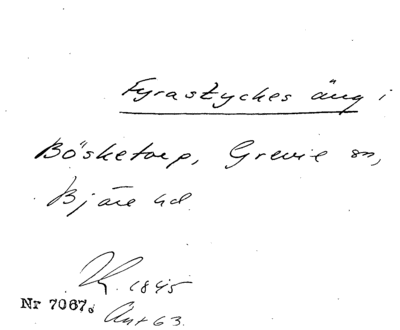 Fyrastyckes äng i
Bösketorp, Grevie sn,
Bjäre hd
K. 1845
Nr 7067. Ant 63.